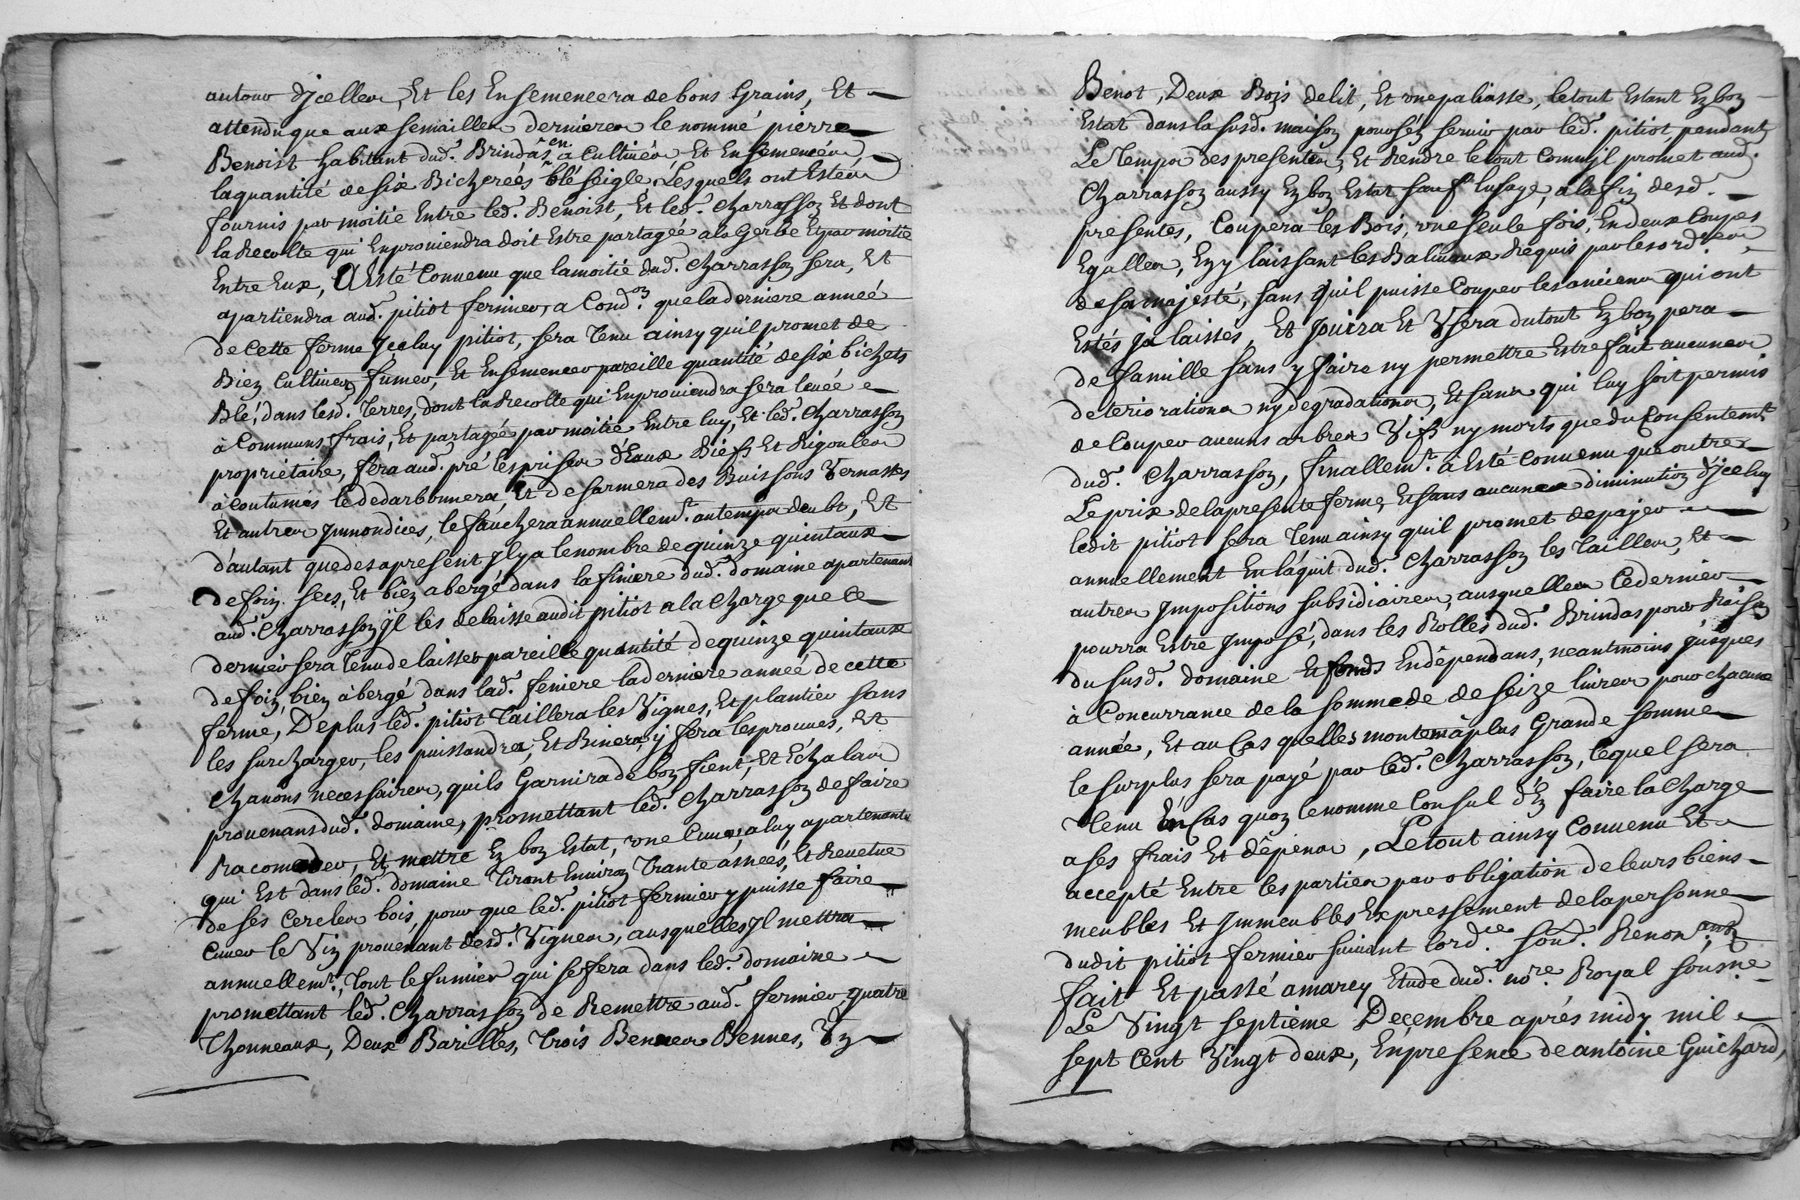 autour d'Jcelles, Et les Ensemencera de bons Grains, Et
attendu que aux semailles dernieres le nommé pierre
Benoist habitant dud. Brindas en a Cultivés Et Ensemencés
la quantité de six Bicherées blé seigle, Lesquels ont Estés
fournis par moitié Entre led. Benoist, Et led. Charrasson Et dont
la Recolte qui Enproviendra doit Estre partagée a la Gerbe Et par moitié
Entre Eux, A Esté Convenu que la moitié dud. Charrasson sera, Et
apartiendra aud. pitiot fermier, a Cond.on que la derniere année
de Cette ferme Jceluy pitiot, sera Tenu ainsy quil promet de
Bien Cultiver, fumer, Et Ensemencer pareille quantité de six bichets
Blé, dans lesd. Terres, dont la Recolte qui Enproviendra sera levée
à Communs frais, Et partagée par moitié Entre luy, Et led. Charrasson
propriétaire, fera aud. pré les prises d'Eaux Biefs Et Rigoules
acoutumés le dedarbonnera, Et desarmera des Buissons Vernasses
Et autres Jmmondices, le fauchera annuellem.t au temps deubt, Et
d'autant que des apresent Jl y a le nombre de quinze quintaux
de foin secs, Et bien abergé dans la finiere dud. domaine apartenant
aud. Charrasson Jl les delaisse audit pitiot a la Charge que Ce
dernier sera Tenu de laisser pareille quantité de quinze quintaux
de foin, bien abergé dans lad. feniere la derniere année de cette
ferme, De plus led. pitiot Taillera les Vignes, Et plantier sans
les surcharger, les puissandra, Et Binera, y fera les proves, Et
Chanons necessaires, quils Garnira de bon fient, Et Echalas
provenans dud. domaine, promettant led. Charrasson de faire
Racomoder, Et mettre En bon Estat, vne Cuve, a luy apartenant
qui Est dans led. domaine Tirant Environ Trante asnées, Et Revetue
de ses Cercles bois, pour que led. pitiot fermier y puisse faire
Cuver le Vin provenant desd. Vignes, ausquelles Jl mettra
annuellem.t, Tout le fumier qui se fera dans led. domaine
promettant led. Charrasson de Remettre aud. fermier quatre
Thonneaux, Deux Barilles, Trois Bennes Bennes, Vn
Benot, Deux Bois de lit, Et vne paliasse, le tout Estant En bon
Estat dans la susd. maison pour s'en servir par led. pitiot pendant
Le Temps des presentes, Et Rendre le tout Comm'jl promet aud.
Charrasson aussy En bon Estat sauf lusage, a la fin desd.
presentes, Coupera les Bois, vne seule fois, En deux Coupes
Egalles, En y laissant les Baliuaux Requis par les ord.ces
de sa majesté, sans quil puisse Couper les anciens qui ont
Estés ja laisses, Et Jouira Et Vsera du tout En bon pera
de famille sans y faire ny permettre Estre fait aucunes
deteriorations ny degradations, Et sans qui luy soit permis
de Couper aucuns arbres Vifs ny morts que du Consentem.t
dud. Charrasson, finallem.t a Esté Convenu que outre
Le prix de la presente ferme, Et sans aucunes diminution d'Jceluy
ledit pitiot sera Tenu ainsy quil promet de payer
annuellement En l'aquit dud. Charrasson les Tailles, Et
autres Jmpositions subsidiaires, ausquelles Ce dernier
pourra Estre Jmposé, dans les Rolles dud. Brindas pour Raison
du susd. domaine Et fonds Endépendans, neantmoins jusques
à Concurrance de la somme de de seize livres pour chacune
année, Et au Cas quelles montent à plus Grande somme
le surplus sera payé par led. Charrasson, lequel sera
Tenu En Cas quon le nomme Consul d'En faire la Charge
a ses frais Et dépens, Le tout ainsy Convenu Et
accepté Entre les parties par obligation de leurs biens
meubles Et Jmmeubles Expressement de la personne
dudit pitiot fermier suivant lord.ce soud. Renon.ant
fait Et passé amarcy Etude dud. no.re Royal sousne
Le Vingt septieme Decembre aprés midy mil
sept Cent Vingt deux, En presence de antoine Guichard,